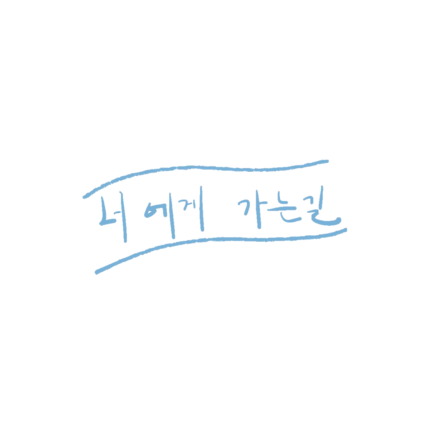 너에게 가는길